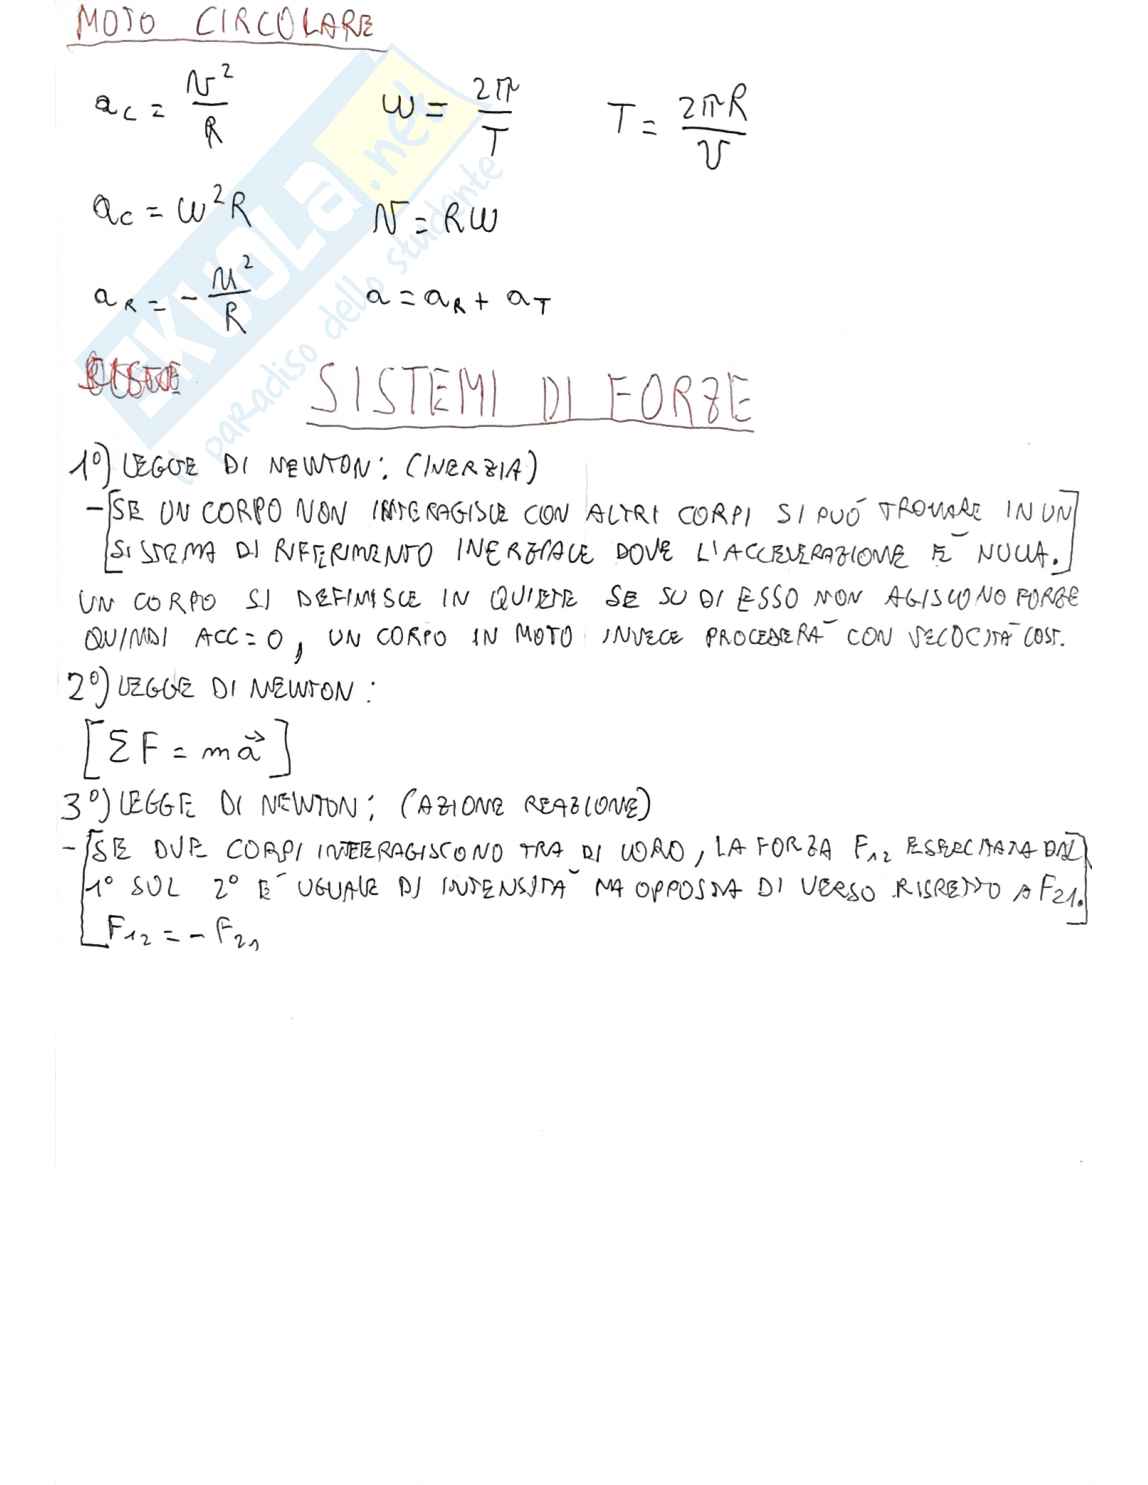 MOTO CIRCOLARE
ac = v²/R    ω = 2π/T    T = 2πR/v
ac = ω²R    v = Rω
aR = - v²/R    a = aR + aT
SISTEMI DI FORZE
1°) LEGGE DI NEWTON: (INERZIA)
- [SE UN CORPO NON INTERAGISCE CON ALTRI CORPI SI PUÓ TROVARE IN UN
SISTEMA DI RIFERIMENTO INERZIALE DOVE L'ACCELERAZIONE È NULLA.]
UN CORPO SI DEFINISCE IN QUIETE SE SU DI ESSO NON AGISCONO FORZE
QUINDI ACC = 0, UN CORPO IN MOTO INVECE PROCEDERÀ CON VELOCITÀ COST.
2°) LEGGE DI NEWTON:
[ΣF = ma⃗]
3°) LEGGE DI NEWTON: (AZIONE REAZIONE)
- [SE DUE CORPI INTERAGISCONO TRA DI LORO, LA FORZA F12 ESERCITATA DAL
1° SUL 2° È UGUALE DI INTENSITÀ MA OPPOSTA DI VERSO RISPETTO A F21.]
F12 = - F21
SKUOLA.net
il paradiso dello studente